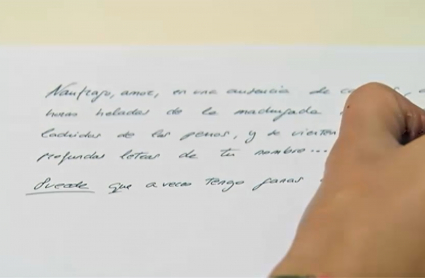 Naufrago, amor, en una ausencia de
horas heladas de la madrugada
ladridos de los perros, y se
profundas letras de tu nombre...
Sucede que a veces tengo ganas